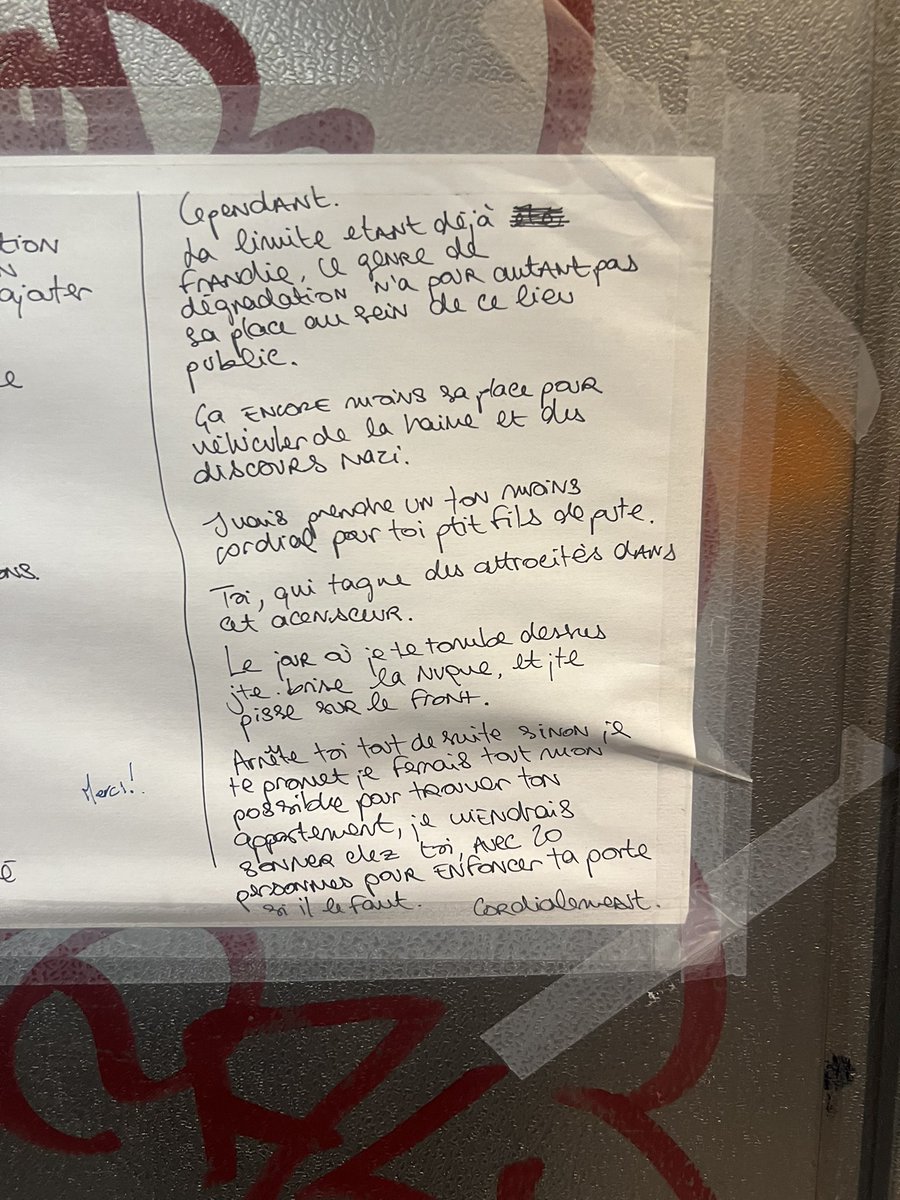 tion
N
ajouter
e
ons.
Merci!
é
Cependant.
La limite etant dejà
franchie, ce genre de
dégradation n'a pour autant pas
sa place au sein de ce lieu
public.
Ça encore moins sa place pour
véhiculer de la haine et des
discours nazi.
Jvais prendre un ton moins
cordial pour toi ptit fils de pute.
Toi, qui tague des attrocités dans
cet acensceur.
Le jour où je te tombe dessus
jte brise la nuque, et jte
pisse sur le front.
Arrête toi tout de suite sinon je
te promet je ferais tout mon
possible pour trouver ton
appartement, je viendrais
sonner chez toi, avec 20
personnes pour enfoncer ta porte
si il le faut. Cordialement.